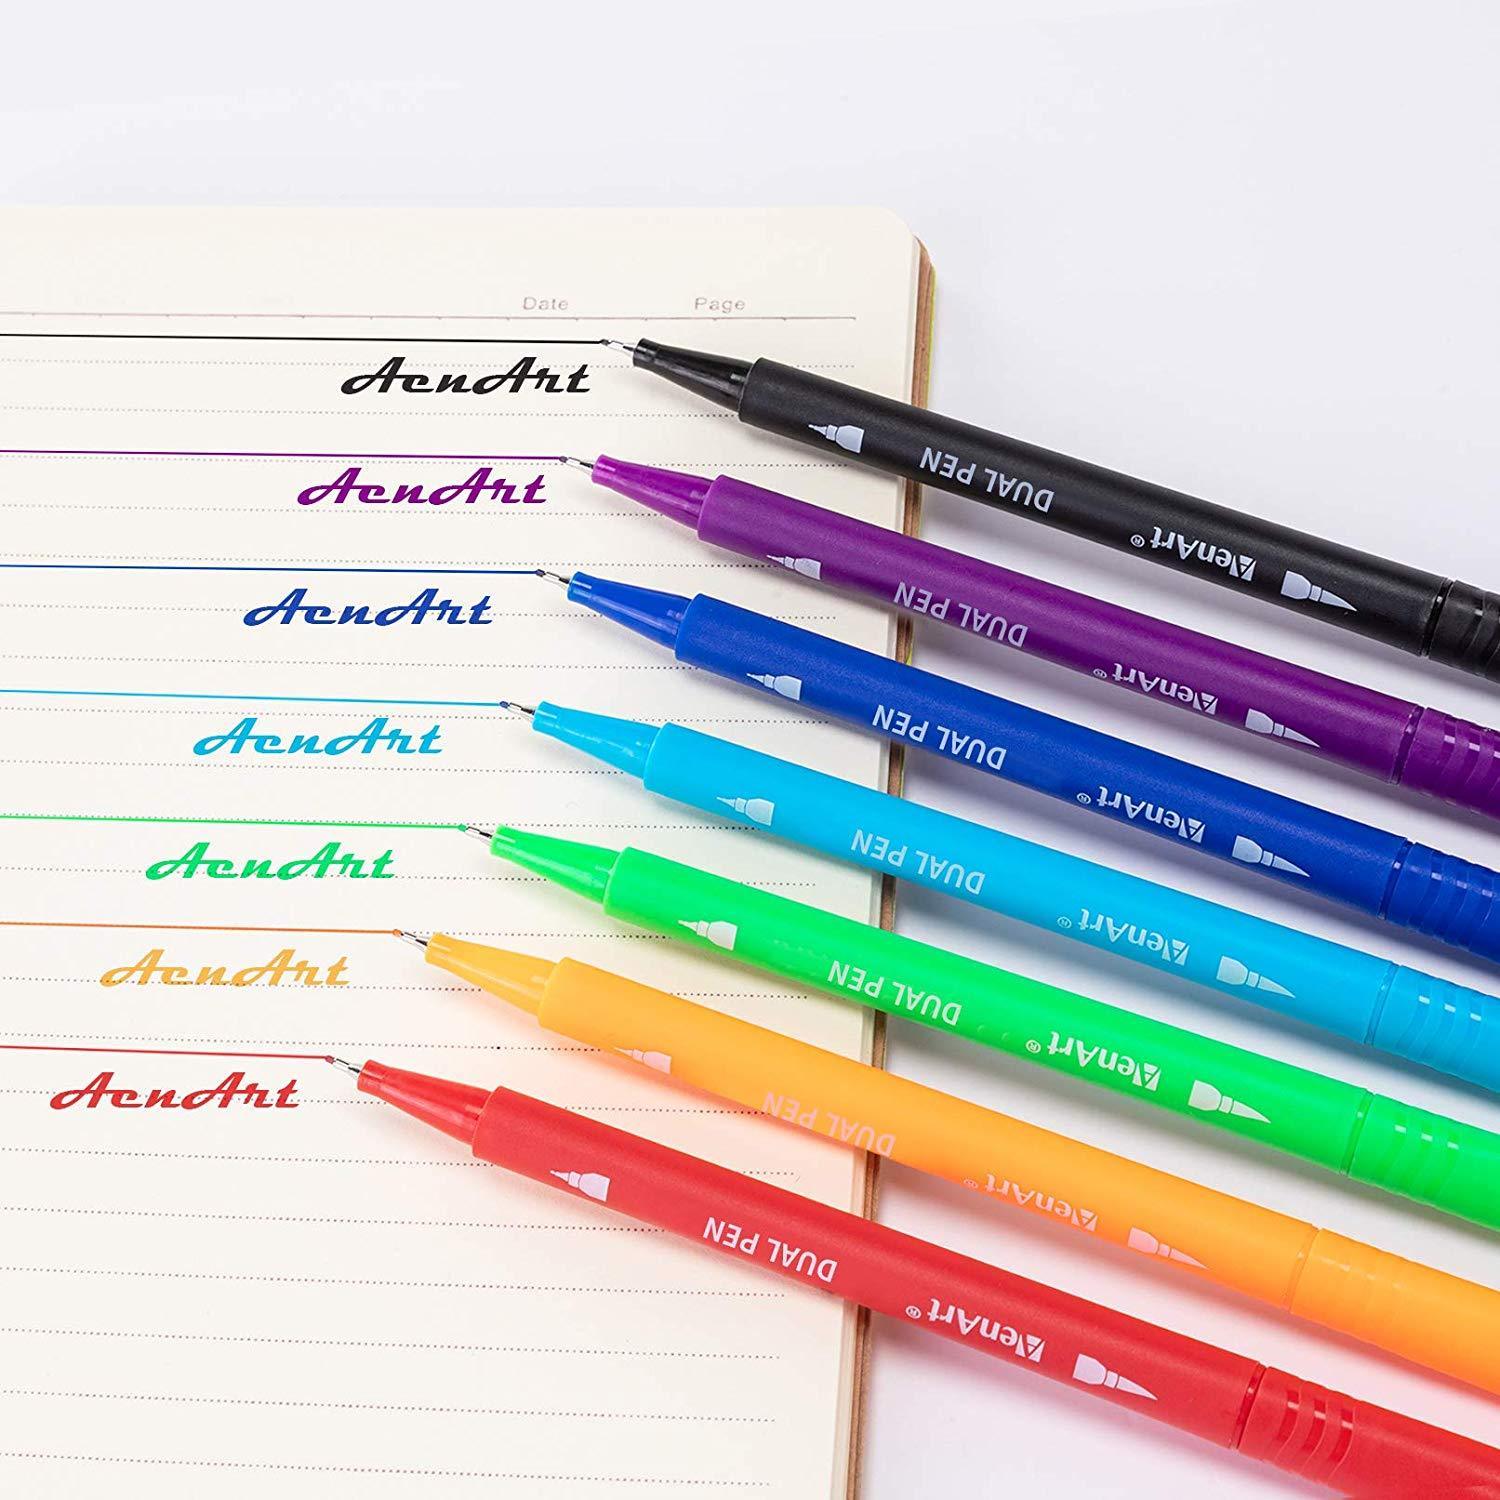 Date Page
AenArt
AenArt
AenArt
AenArt
AenArt
AenArt
AenArt
DUAL PEN AenArt®
DUAL PEN AenArt®
DUAL PEN AenArt®
DUAL PEN AenArt®
DUAL PEN AenArt®
DUAL PEN AenArt®
DUAL PEN AenArt®